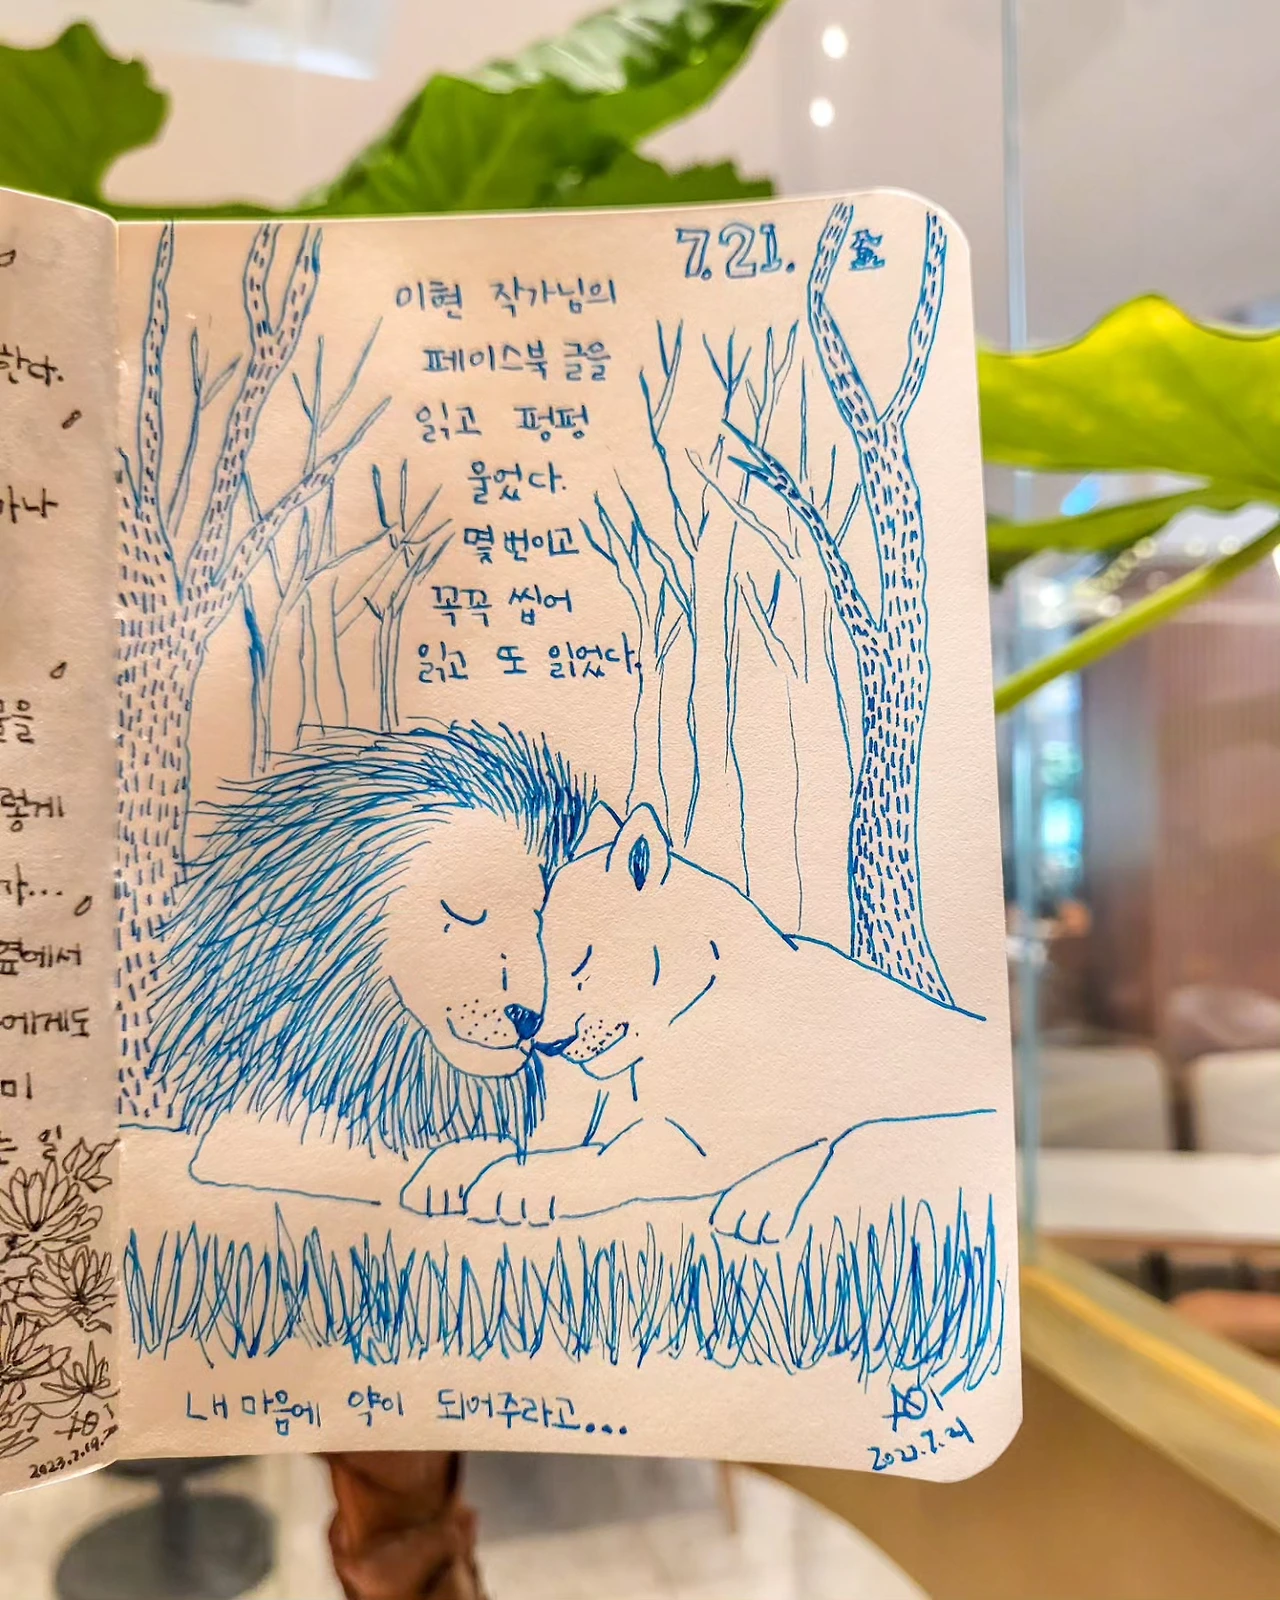 한다.
옆에서
에게도
7.21. 金
이현 작가님의
페이스북 글을
읽고 펑펑
울었다.
몇 번이고
꼭꼭 씹어
읽고 또 읽었다.
내 마음에 약이 되어주라고...
2023.7.21